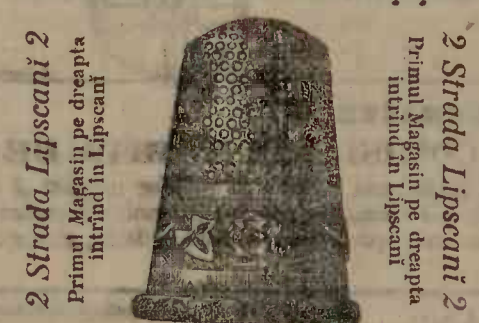 2 Strada Lipscanĭ 2
Primul Magasin pe dreapta
intrînd in Lipscanĭ
2 Strada Lipscanĭ 2
Primul Magasin pe dreapta
intrînd în Lipscanĭ